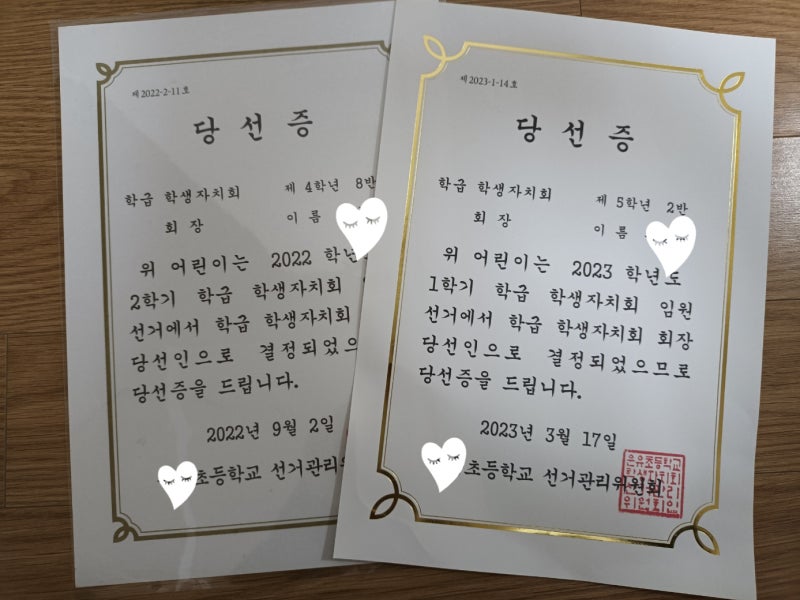 제 2022-2-11 호
당 선 증
학급 학생자치회 제 4학년 8반
회 장 이 름
위 어린이는 2022 학년
2학기 학급 학생자치회
선거에서 학급 학생자치회
당선인으로 결정되었으
당선증을 드립니다.
2022년 9월 2일
초등학교 선거관리위
제 2023-1-14 호
당 선 증
학급 학생자치회 제 5학년 2반
회 장 이 름
위 어린이는 2023 학년도
1학기 학급 학생자치회 임원
선거에서 학급 학생자치회 회장
당선인으로 결정되었으므로
당선증을 드립니다.
2023년 3월 17일
초등학교 선거관리위원회